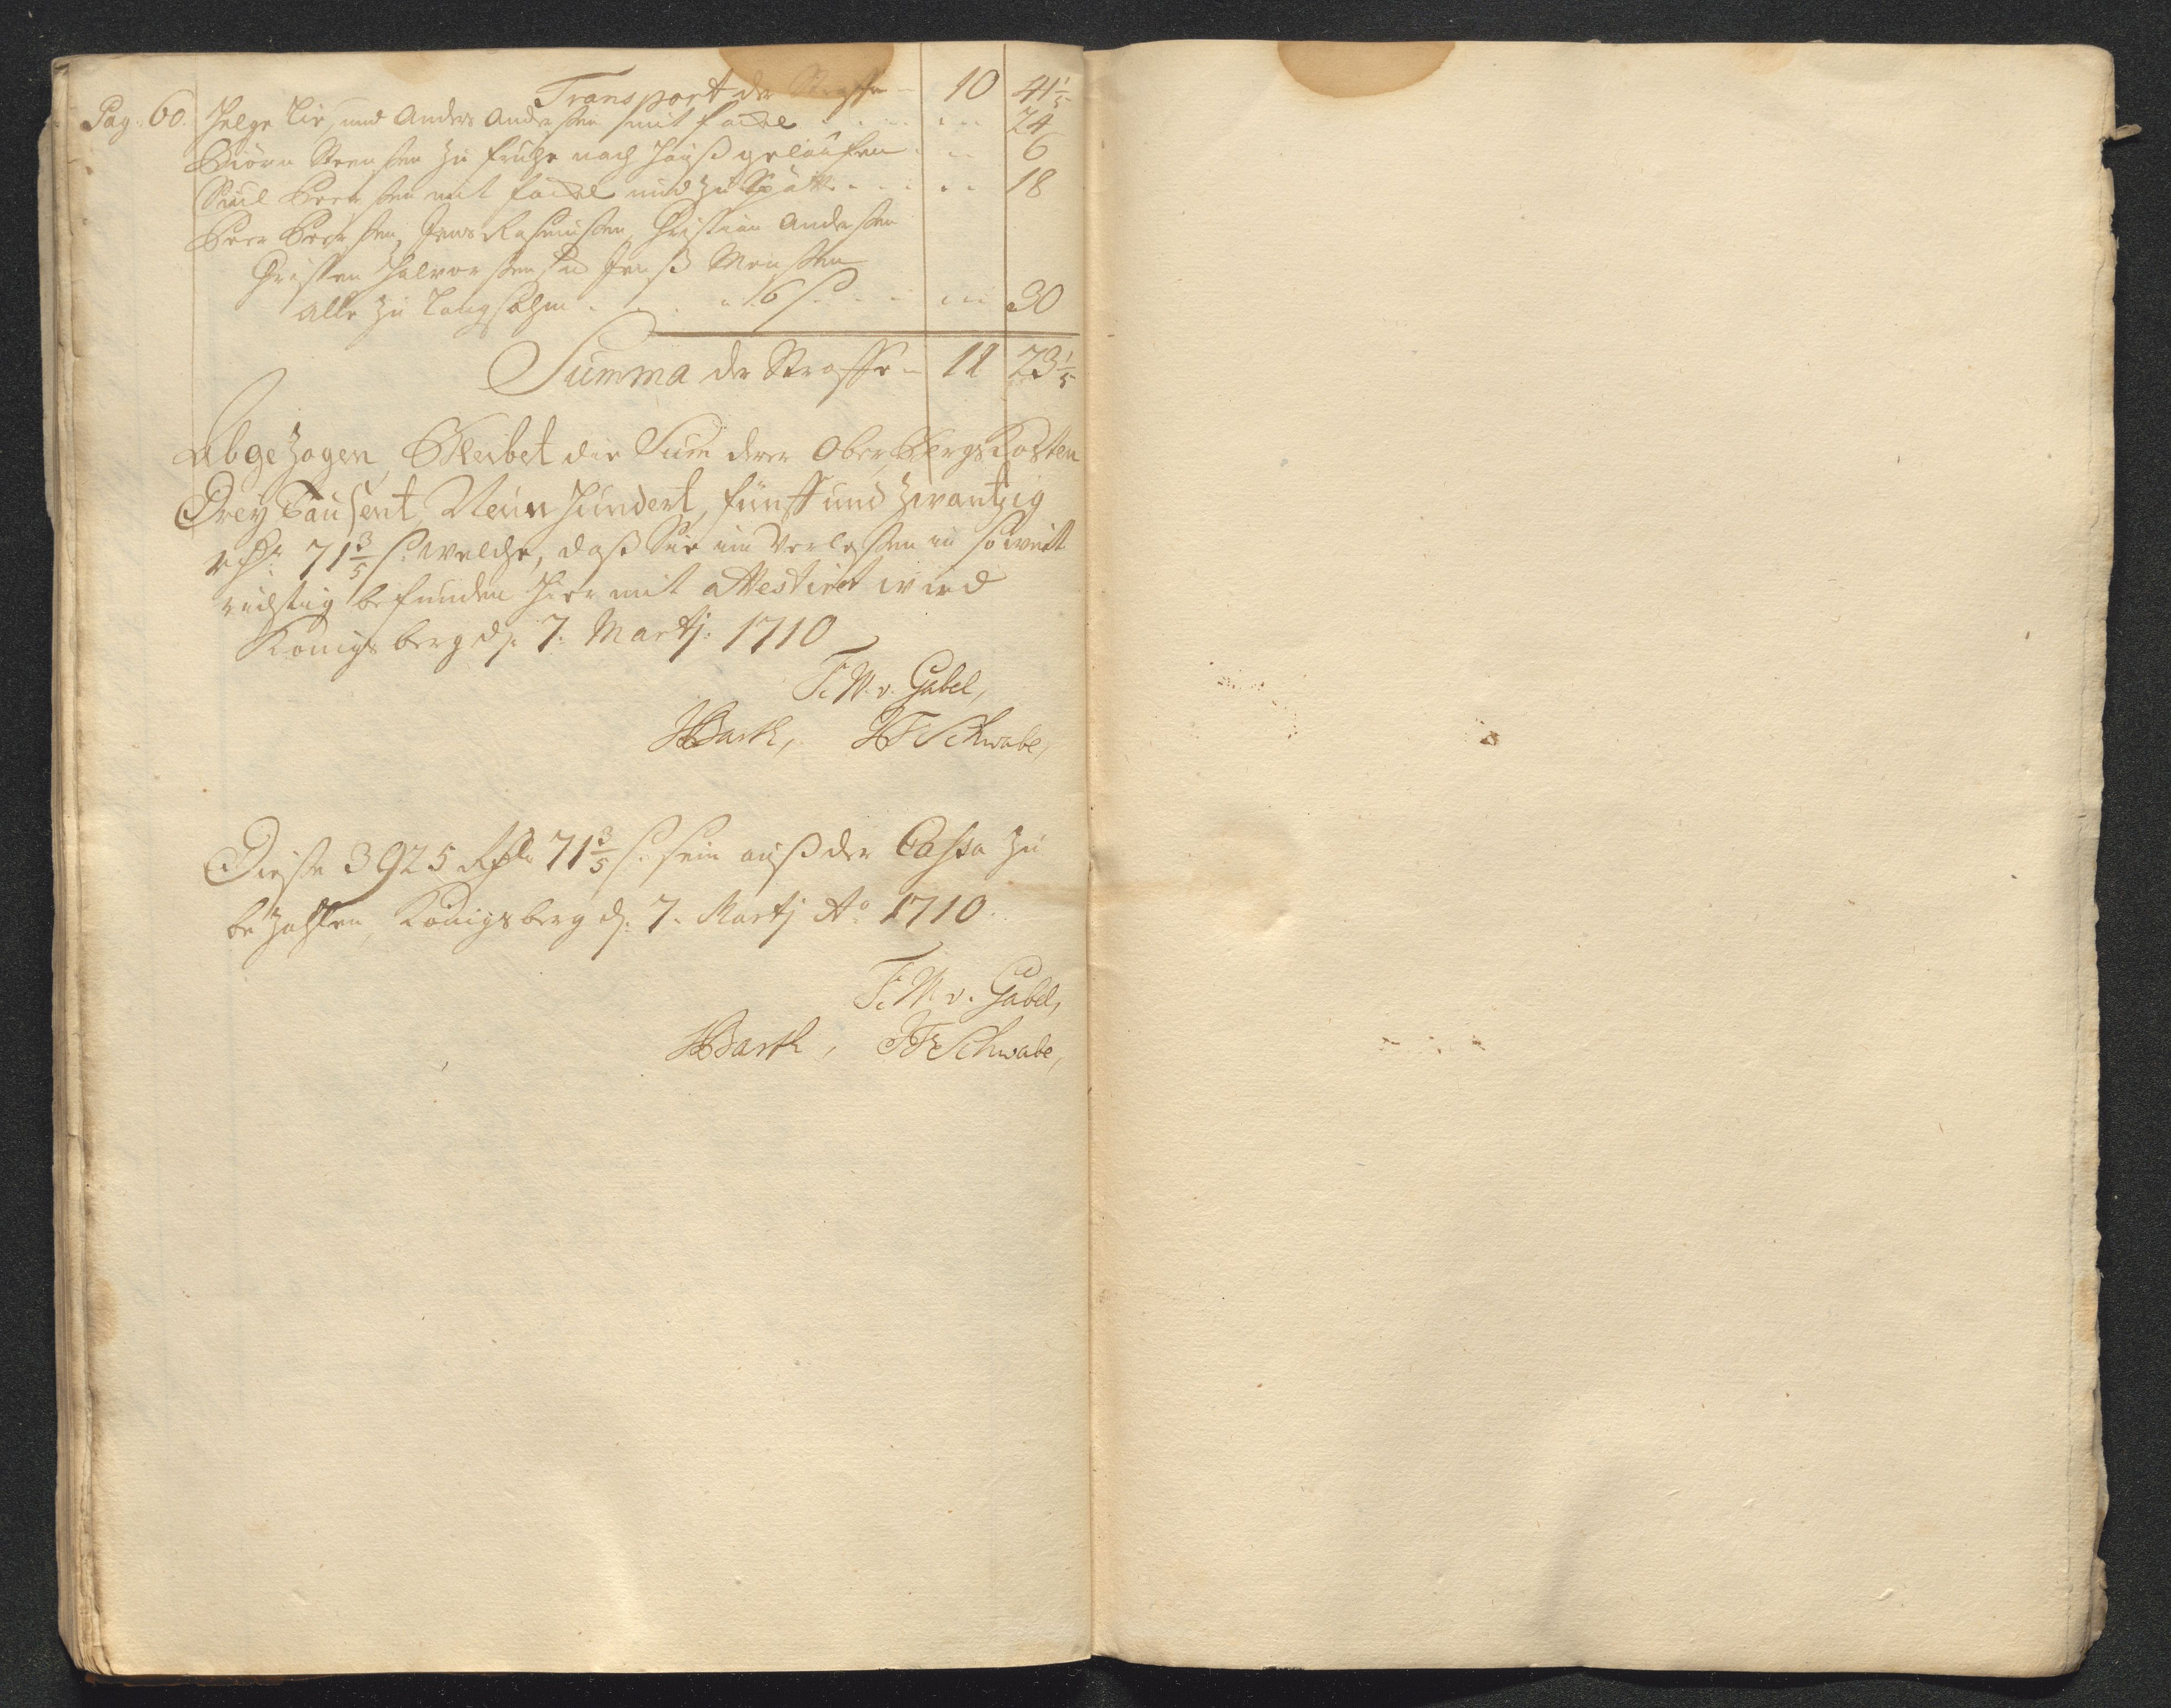 Transport der Straffe - 10 41 1/5
Pag. 60. Helge Lie, und Anders Andersen mit fackel 24
Biörn Steensen zu fruhe nach Hauß gelauffen 6
Poul Peersen mit fackel und zu Spätt 18
Peer Peersen, Jens Rasmussen, Christian Andersen
Christen Halvorsen und Jenß Monsen
alle zu langsahm a 6 s. 30
Summa der Straffe - 11 23 1/5
Abgezogen, Bleibet die Sum derer Ober Bergs Kosten
Drey Tausent, Neun Hundert, fünff und zwantzig
rthr 71 3/5 s. welche, daß Sie im Verlesen in so weit
richtig befunden hier mit attestiret wird
Königsberg d. 7. Martj. 1710
F. W. v. Gabel,
HBarth, HF Schwabe,
Diese 3925 Rthlr 71 3/5 s. sein auß der Cassa zu
bezahlen, Königsberg d. 7. Martj Ao 1710.
F. W. v. Gabel,
HBarth, HF Schwabe,